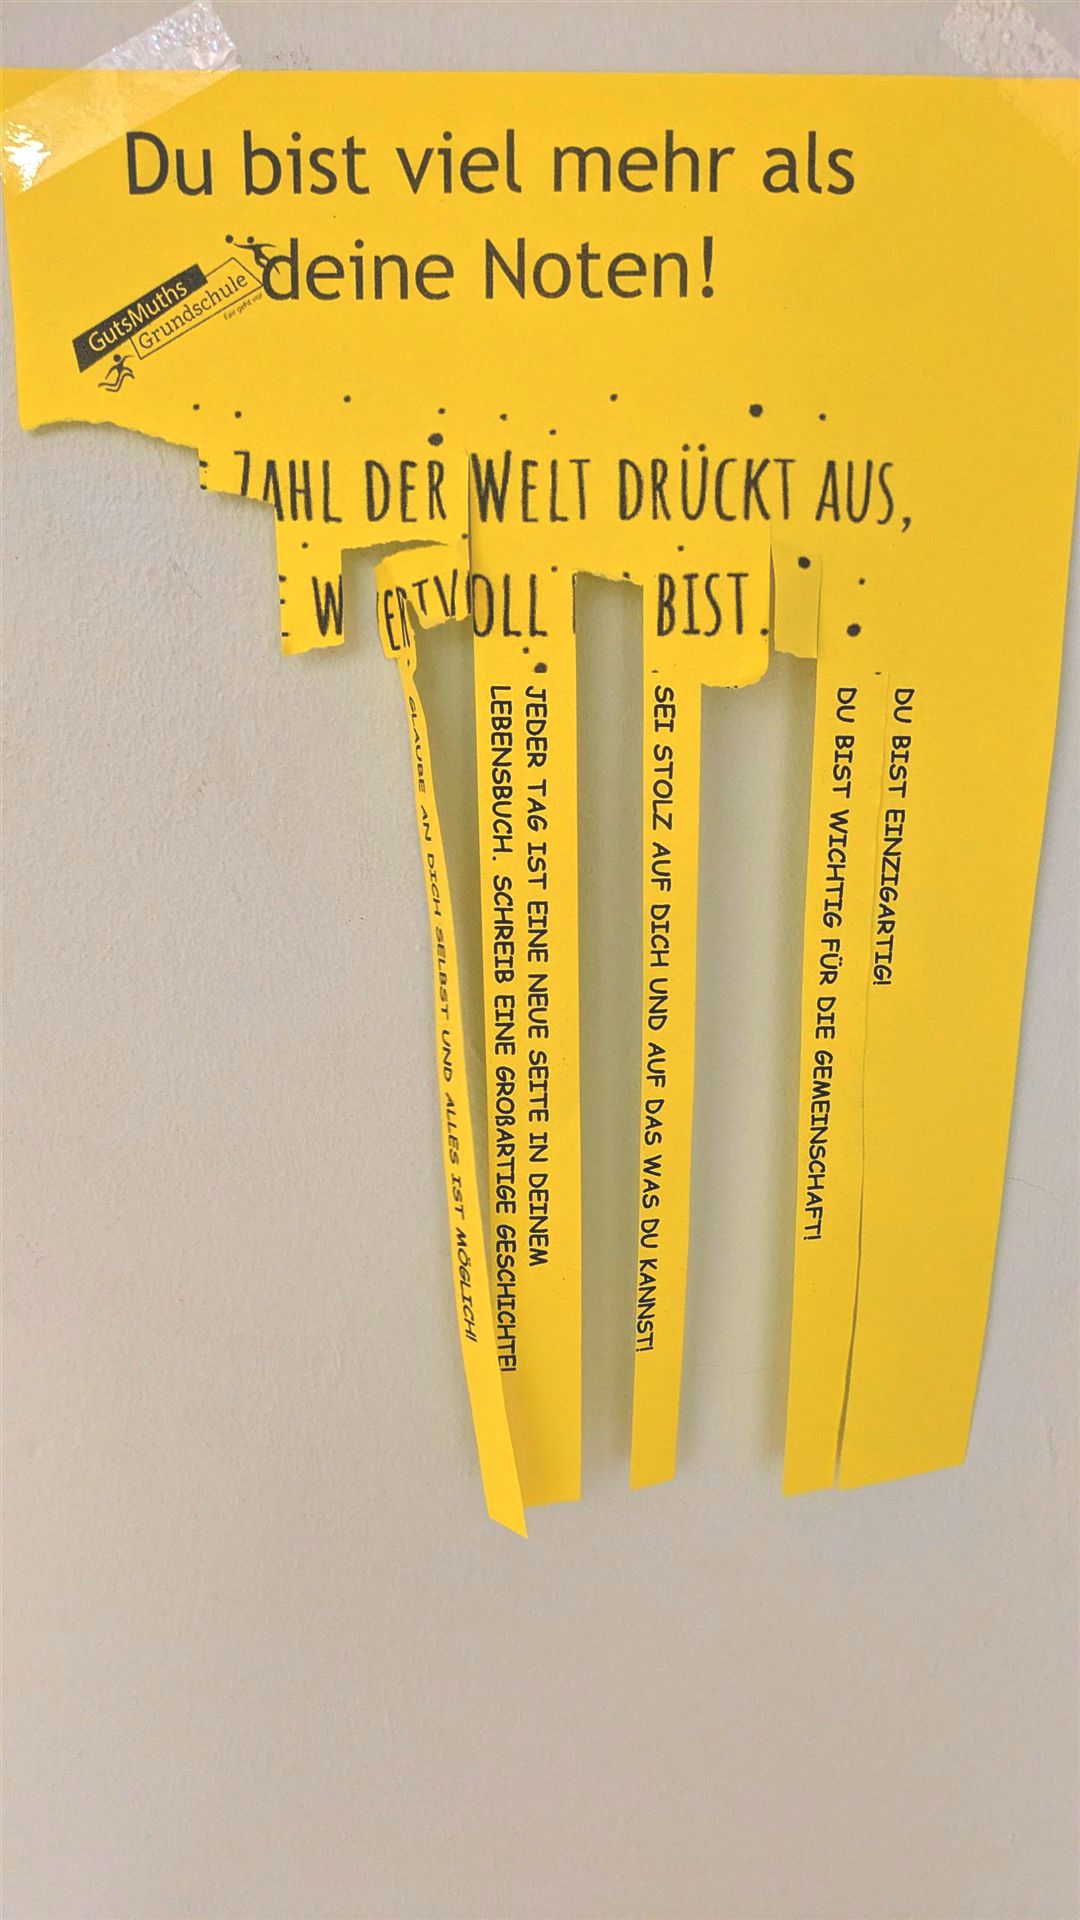 Du bist viel mehr als
deine Noten!
GutsMuths
Grundschule
Fair geht vor
ZAHL DER WELT DRÜCKT AUS,
WERTVOLL BIST.
GLAUBE AN DICH SELBST UND ALLES IST MÖGLICH!
JEDER TAG IST EINE NEUE SEITE IN DEINEM
LEBENSBUCH. SCHREIB EINE GROßARTIGE GESCHICHTE!
SEI STOLZ AUF DICH UND AUF DAS WAS DU KANNST!
DU BIST WICHTIG FÜR DIE GEMEINSCHAFT!
DU BIST EINZIGARTIG!